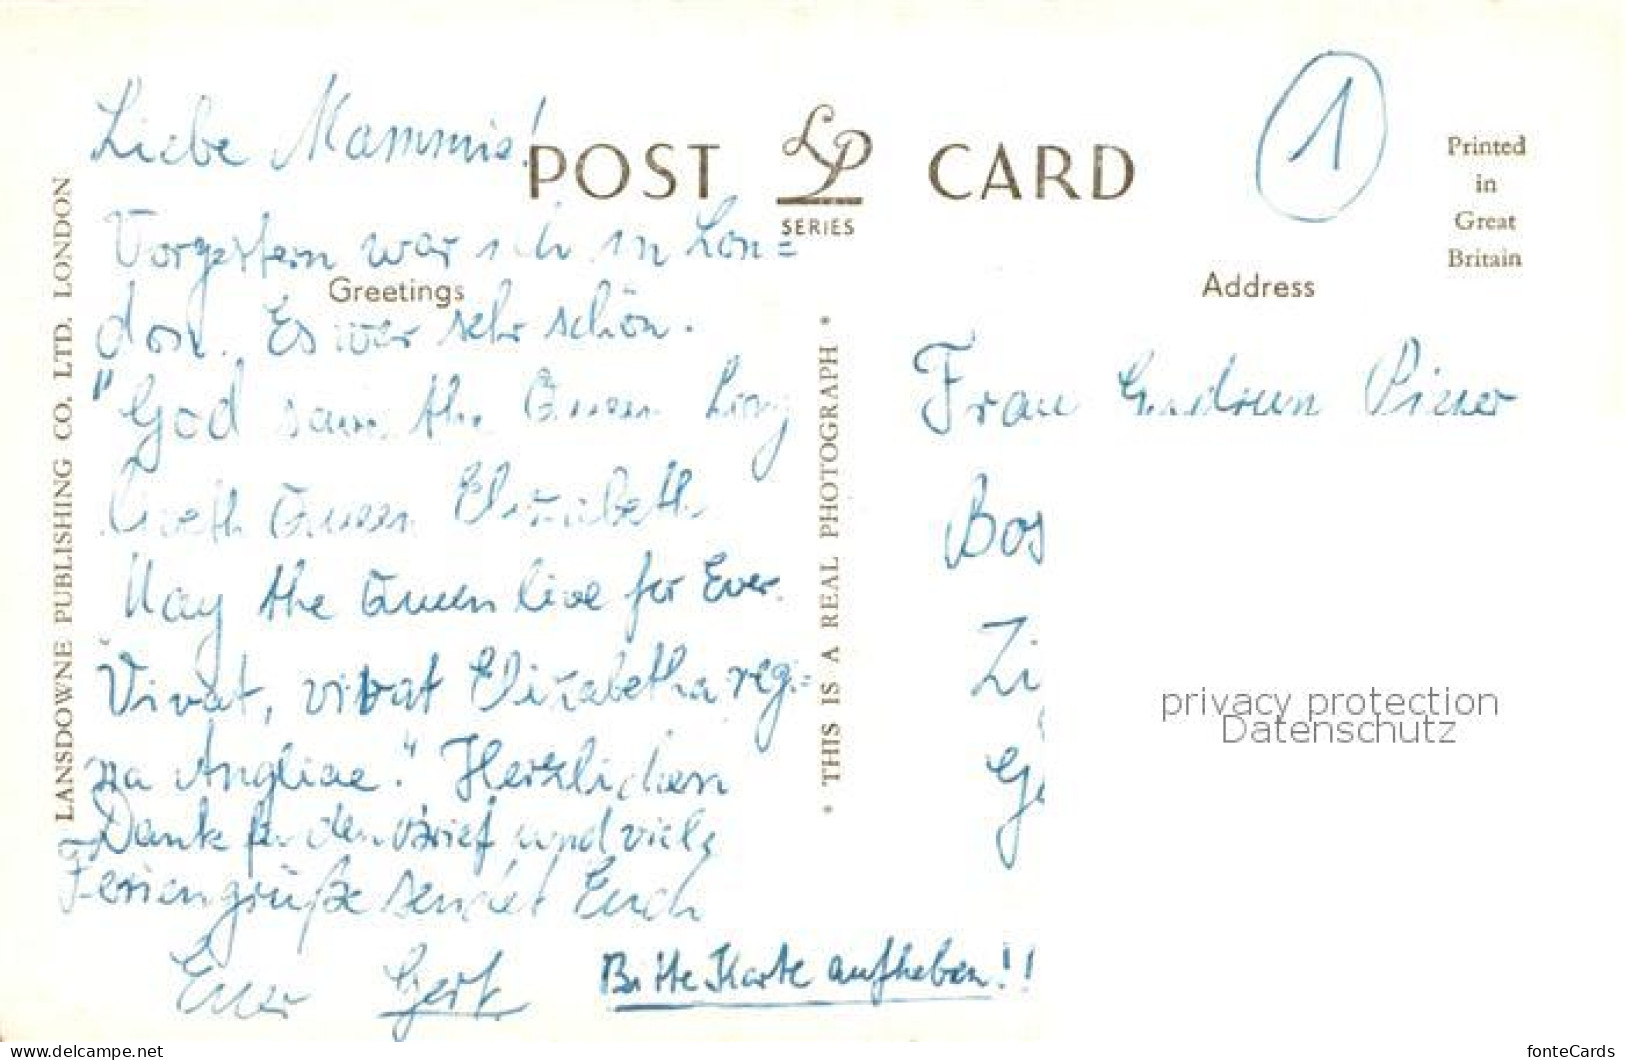 Liebe Mammis!
POST LP CARD
SERIES
1
Printed
in
Great
Britain
Vorgestern war ich in Lon=
Greetings
Address
don. Es war sehr schön.
"God save the Queen Long
liveth Queen Elizabeth
May the Queen live for Ever.
Vivat, vivat Elizabetha regi=
na Angliae." Herzlichen
Dank für den Brief und viele
Feriengrüße sendet Euch
Euer Gert
Bitte Karte aufheben!!
LANSDOWNE PUBLISHING CO. LTD. LONDON
• THIS IS A REAL PHOTOGRAPH •
Frau Gudrun
Bos
Zi
privacy protection
Datenschutz
www.delcampe.net
fonteCards